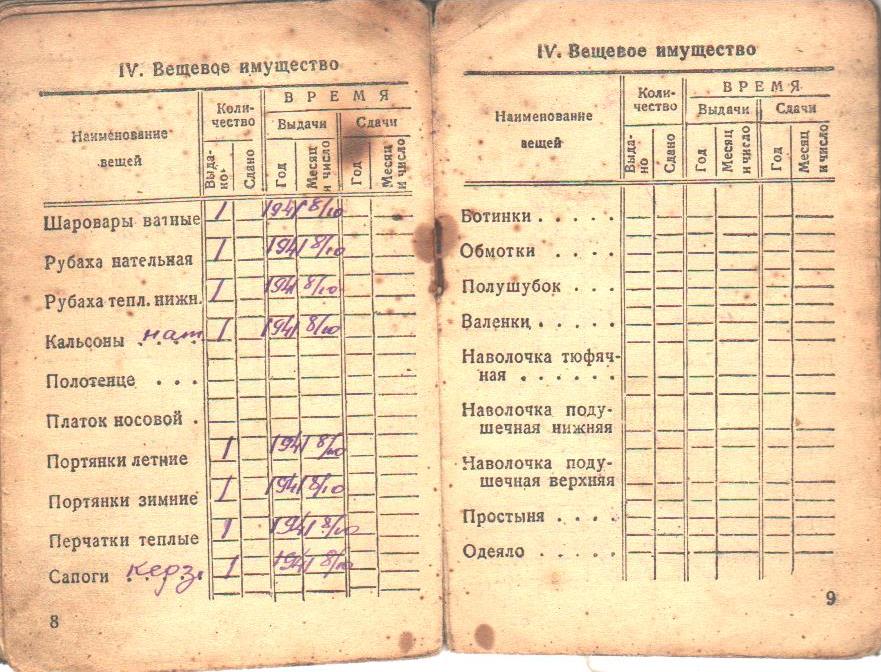 IV. Вещевое имущество
Наименование вещей
Коли-
чество
ВРЕМЯ
Выдачи
Сдачи
Выда-
но.
Сдано
Год
Месяц
и число
Год
Месяц
и число
Шаровары ватные 1 1941 8/10
Рубаха нательная 1 1941 8/10
Рубаха тепл. нижн. 1 1941 8/10
Кальсоны нат. 1 1941 8/10
Полотенце . . .
Платок носовой .
Портянки летние 1 1941 8/10
Портянки зимние 1 1941 8/10
Перчатки теплые 1 1941 8/10
Сапоги керз. 1 1941 8/10
8
IV. Вещевое имущество
Наименование
вещей
Коли-
чество
ВРЕМЯ
Выдачи
Сдачи
Выда-
но
Сдано
Год
Месяц
и число
Год
Месяц
и число
Ботинки . . . . .
Обмотки . . . .
Полушубок . . .
Валенки . . . . .
Наволочка тюфяч-
ная . . . . . .
Наволочка поду-
шечная нижняя
Наволочка поду-
шечная верхняя
Простыня . . . .
Одеяло . . . . .
9